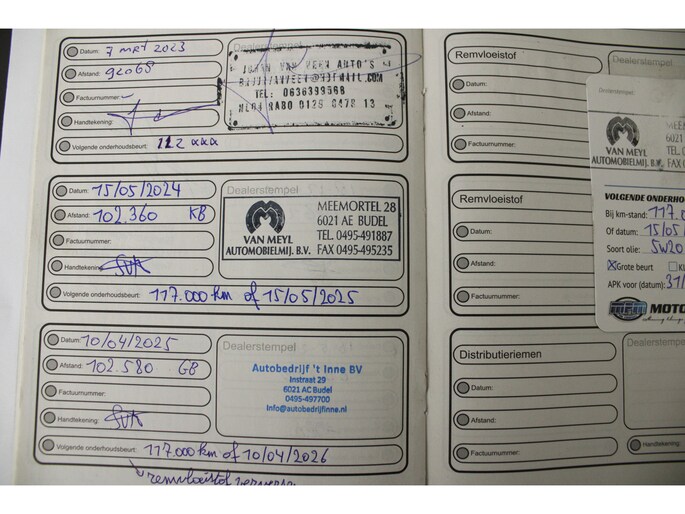 Datum: 7 mrt 2023
Dealerstempel
Afstand: 92068
JOHAN VAN VEEN AUTO'S
TEL: 0636399568
Factuurnummer:
Handtekening:
Volgende onderhoudsbeurt: 112 xxx
Datum: 15/05/2024
Dealerstempel
Afstand: 102.360 KB
VAN MEYL
AUTOMOBIELMIJ. B.V.
MEEMORTEL 28
6021 AE BUDEL
TEL. 0495-491887
FAX 0495-495235
Factuurnummer:
Handtekening:
Volgende onderhoudsbeurt: 117.000 km of 15/05/2025
Datum: 10/04/2025
Dealerstempel
Afstand: 102.580 GB
Autobedrijf 't Inne BV
Instraat 29
6021 AC Budel
0495-497700
Info@autobedrijfinne.nl
Factuurnummer:
Handtekening:
Volgende onderhoudsbeurt: 117.000 km of 10/04/2026
Remvloeistof
Dealerstempel
Datum:
Afstand:
Factuurnummer:
Remvloeistof
Datum:
Afstand:
Factuurnummer:
Distributieriemen
Dealerstempel
Datum:
Afstand:
Factuurnummer:
Handtekening:
Dealerstempel
VAN MEYL
AUTOMOBIELMIJ. B.V.
6021
TEL.
FAX
VOLGENDE ONDERHO
Bij km-stand: 117.0
Of datum: 15/05/
Soort olie: 5W20
Grote beurt
APK voor (datum): 31/
MOTO